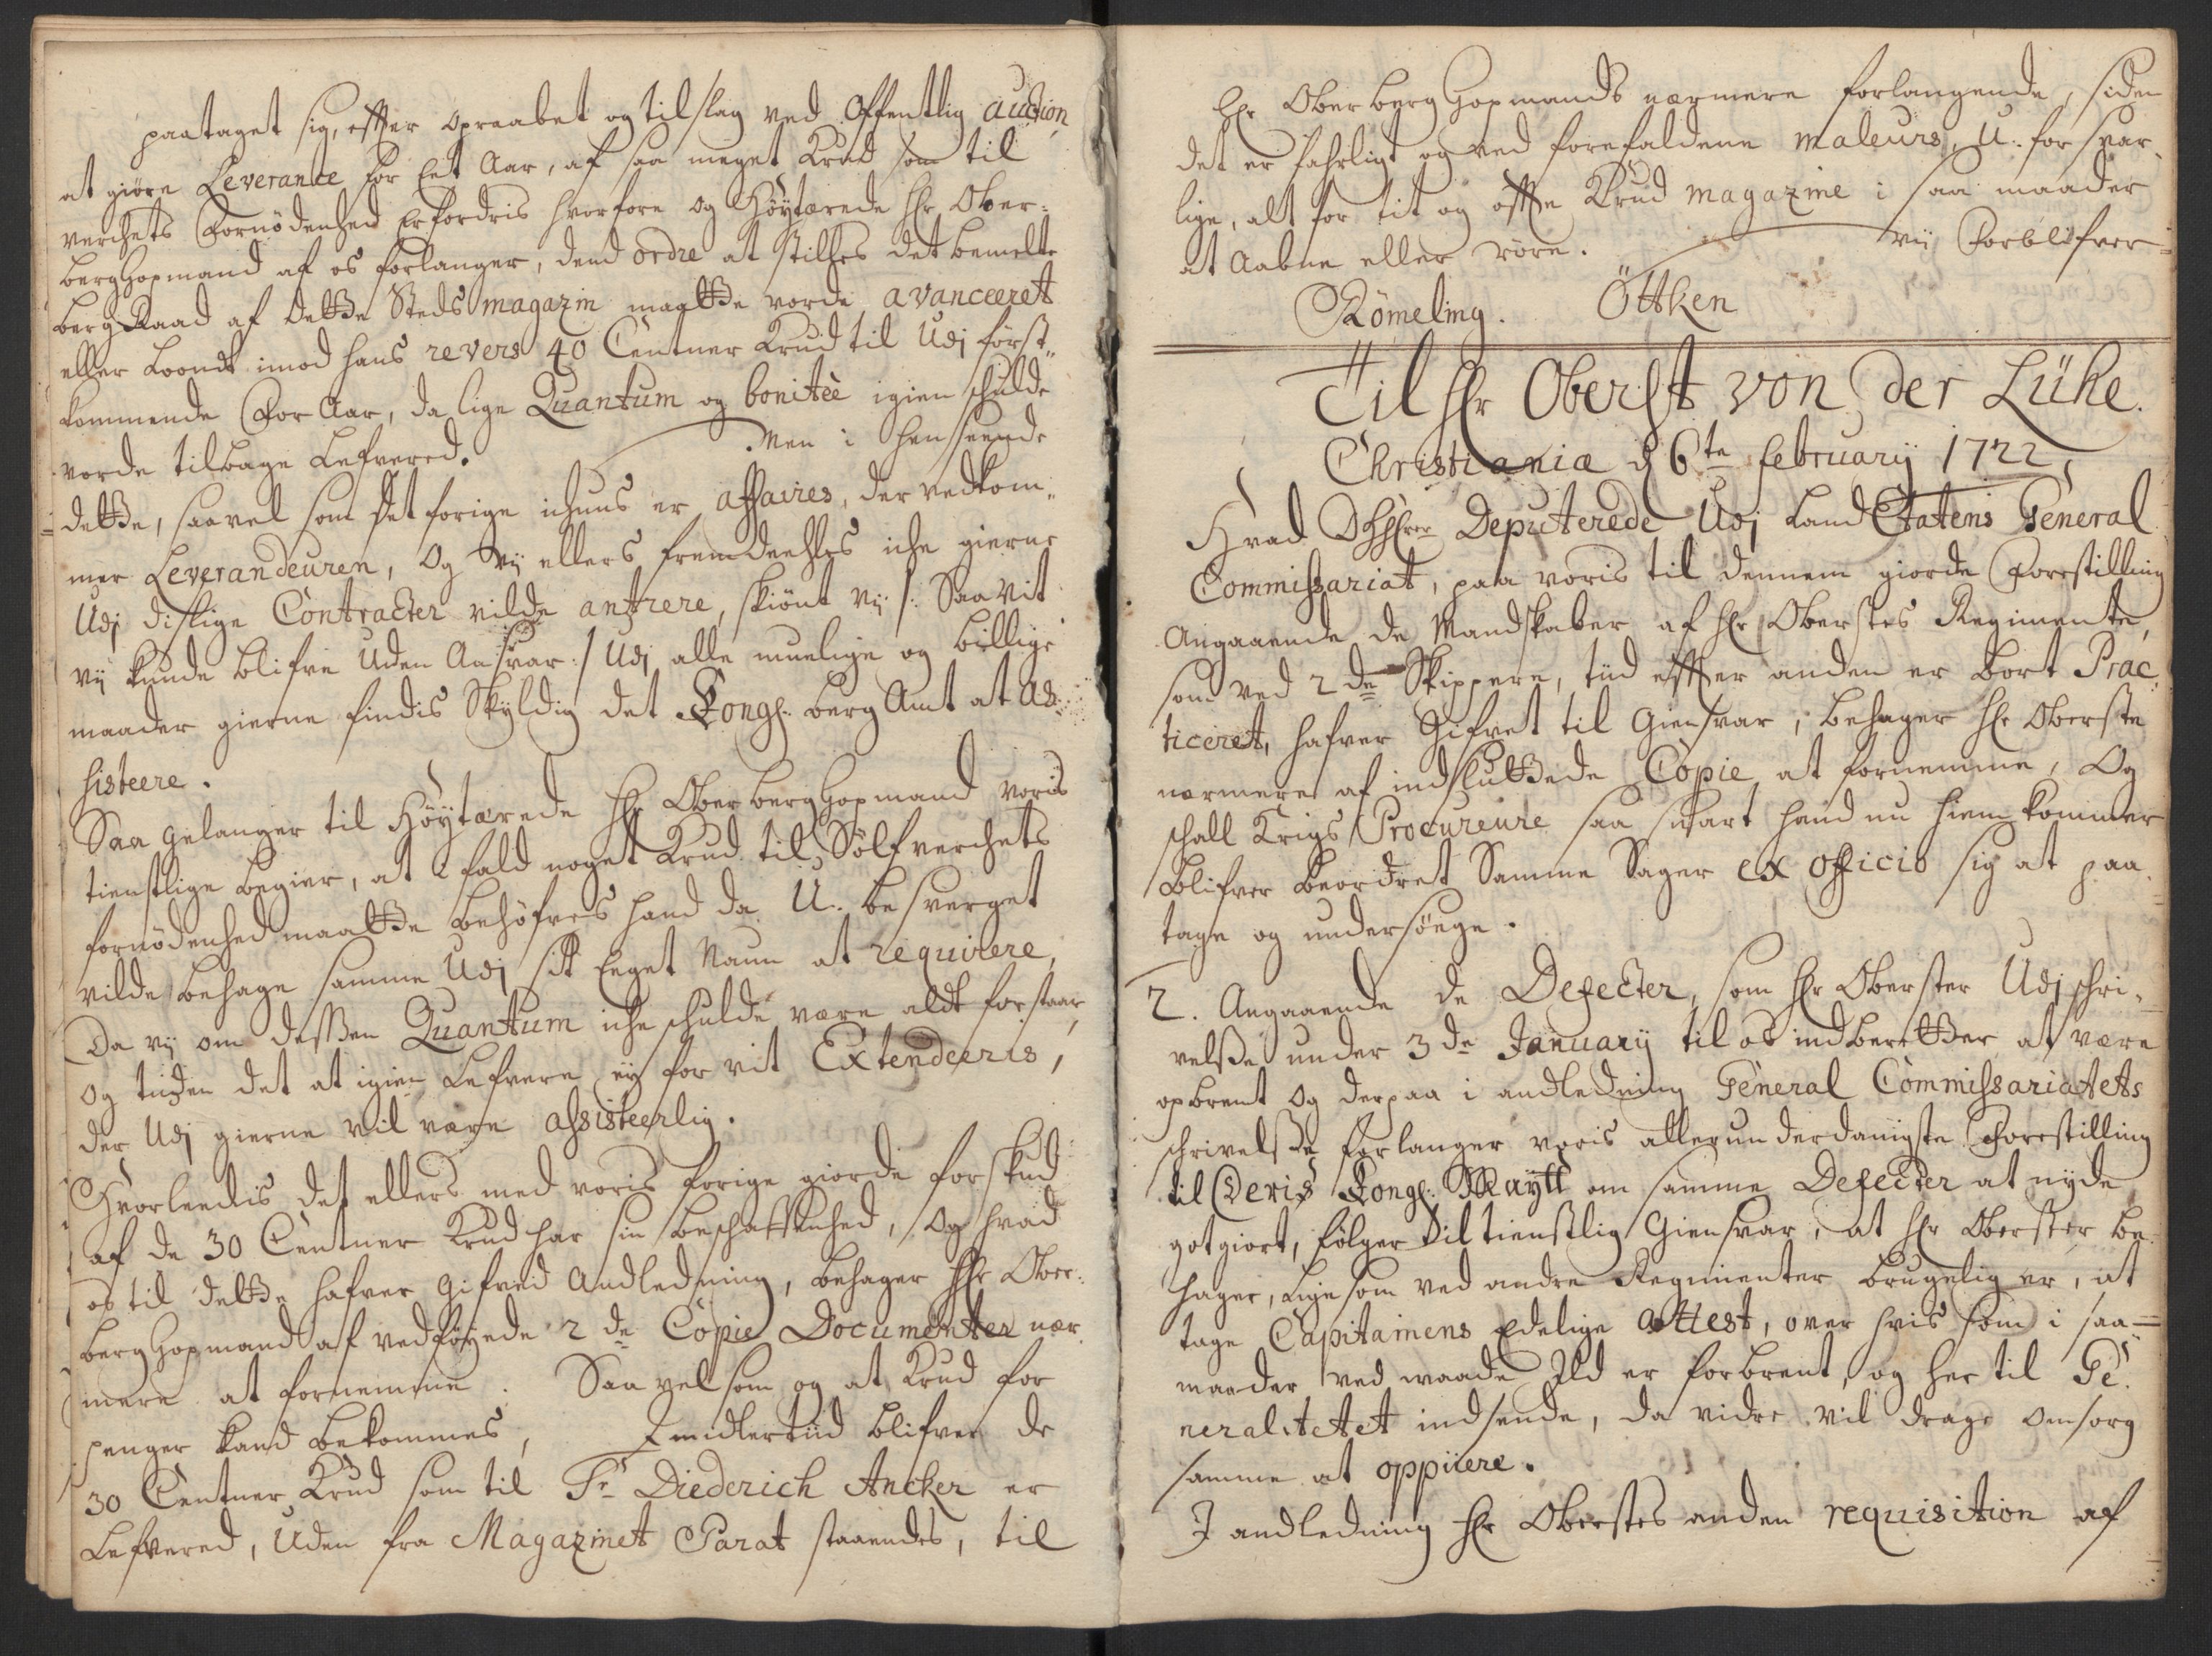 paataget sig, effter opraabet og tilslag ved Offentlig auction
at giöre Leverance for Eet Aar, af saa meget Krud som til
verchets Fornödenhed Erfordris hvorfore og Höytærede Hr Ober-
berghopmand af os forlanger, dend ordre at stilles det bemelte
bergRaad af dette Steds magazin maatte vorde avanceeret
eller Loondt imod hans revers 40 Centner Krud til Udj först-
kommende For Aar, da lige Quantum og bonitèe igien schulde
vorde tilbage Lefvered. Men i henseende
dette, saavel som det forige ichuns er affaires, der vedkom-
mer Leverandeuren, Og vij ellers fremdeehles iche gierne
Udj dislige Contracter vilde antrere, skiönt vij /: Saavit
vij kunde blifve Uden Ansvar :/ Udj alle muelige og billige
maader gierne findis Skyldig det Kongl. berg Amt at As-
sisteere.
Saa gelanger til Höytærede Hr Oberberghopmand voris
tienstlige begier, at i fald noget Krud til Sölfverchets
fornödenhed maatte behöfves hand da U-besverget
vilde behage samme Udj sit Eeget Naun at requirere,
Da vij om dessen Quantum iche schulde være aldt for staar,
og tiiden det at igien Lefvere ej for vit Extendeeris,
der Udj gierne vil være assisteerlig.
Hvorleedis det ellers med voris forige giorde forskud
af de 30 Centner Krud har sin beschaffenhed, og hvad
os til dette hafver gifved Andledning, behager Hr Ober-
berghopmand af vedföyede 2de Copie Documenter nær-
mere at fornemme. Saa vel som og at Krud for
penger kand bekommes, Imidlertiid blifver de
30 Centner Krud som til Sr Diederich Ancker er
Lefvered, Uden fra Magazinet Parat staaendes, til
Hr Oberberghopmands nærmere forlangende, siden
det er fahrligt og ved forefaldene maleurs, U-forsvar-
lige, alt for tit og offte Krud magazine i saa maader
at Aabne eller röre. vij Forblifver
Römeling. Öttken
Til Hr Oberst von der Lühe.
Christiania d 6te februarij 1722
Hvad Deputerede Udj Land Etatens General
Commissariat, paa voris til dennem giorde Forestilling
Angaaende de Mandskaber af Hr Oberstes Regimente,
som ved 2de Skippere, tiid effter anden er bort Prac-
ticeret, hafver Gifvet til Giensvar, behager Hr Oberste
nærmere af indsluttede Copie at fornemme, Og
schall Krigs Procureure saa snart hand nu hiem kommer
blifver beordret Samme Sager ex officio sig at paa-
tage og undersöege.
2. Angaaende de Defecter, som Hr Oberster Udj schri-
velse under 3de Januarij til os indberetter at være
opbrent og derpaa i andledning General Commissariatets
schrivelse forlanger voris allerunderdanigste Forestilling
til Deris Kongl: Mayt om samme Defecter at nyde
gotgiort, fölger til tienstlig Giensvar, at Hr Oberster be-
hager, Ligesom ved andre Regimenter brugelig er, at
tage Capitainens Edelige attest, over hvis som i saa-
maader ved vaade Ild er forbrent, og her til Ge-
neralitetet indsende, da videre vil drage omsorg
samme at oppiiere.
I andledning Hr Oberstes anden requisition af